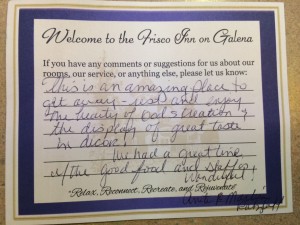 Welcome to the Frisco Inn on Galena
If you have any comments or suggestions for us about our
rooms, our service, or anything else, please let us know:
This is an amazing place to
get away - rest and enjoy
the beauty of God's creation &
the display of great taste
in decor!
We had a great time
w/the good food and
Wonderful!
"Relax, Reconnect, Recreate, and Rejuvenate"